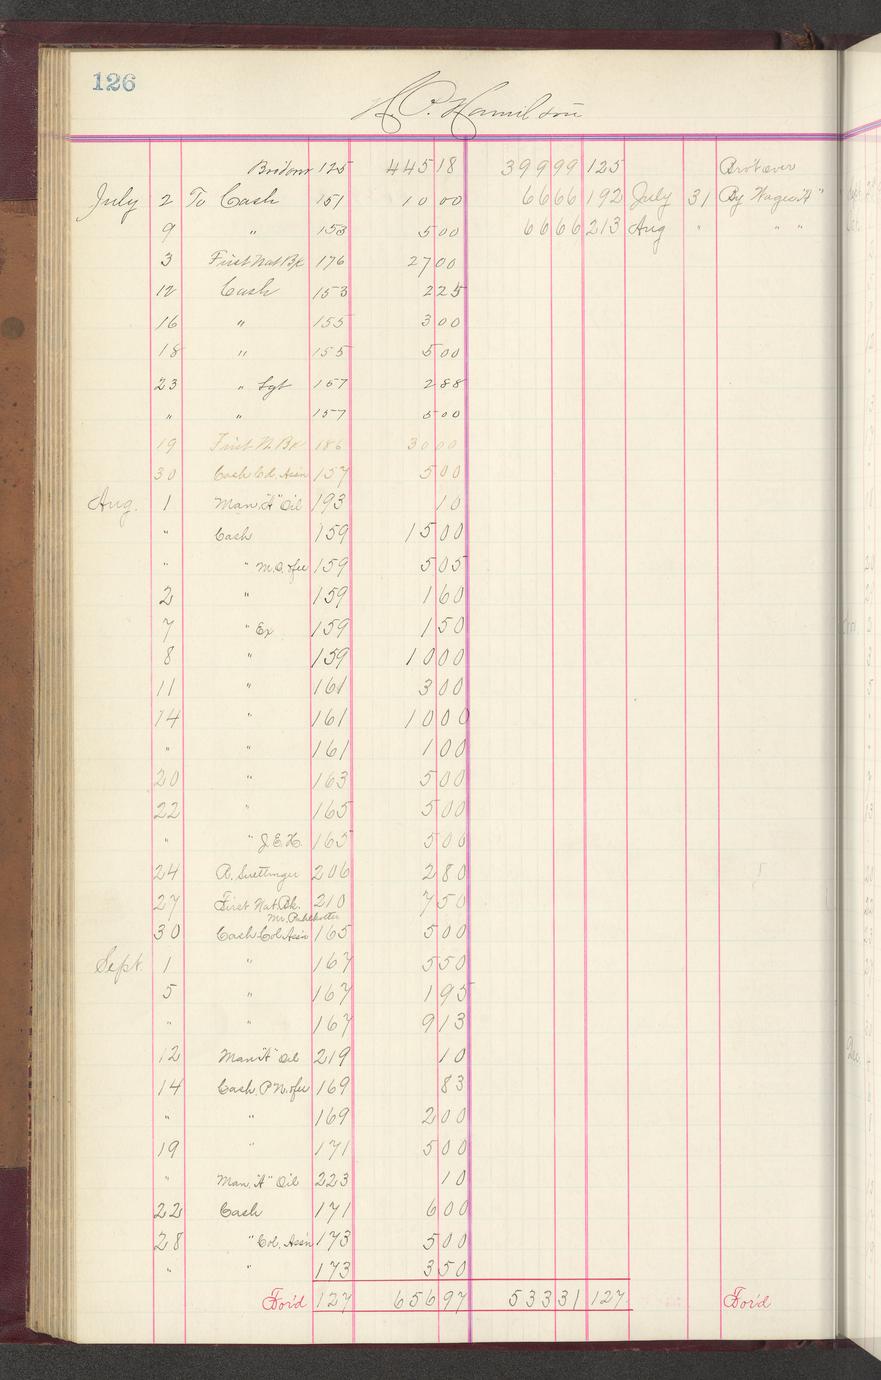 126
H. P. Hamilton
Bro't over 125 445 18 399 99 125 Bro't over
July 2 To Cash 151 10 00 66 66 192 July 31 By Wages "A"
9 " 153 5 00 66 66 213 Aug " " "
3 First Nat Bk 176 27 00
12 Cash 153 2 25
16 " 155 3 00
18 " 155 5 00
23 " Sgt 157 2 88
" " 157 5 00
19 First N. Bk 186 30 00
30 Cash Col. Ass'n 157 5 00
Aug. 1 Man. "A" Oil 193 10
" Cash 159 15 00
" " M.O. & fee 159 5 05
2 " 159 1 60
7 " Ex 159 1 50
8 " 159 10 00
11 " 161 3 00
14 " 161 10 00
" " 161 1 00
20 " 163 5 00
22 " 165 5 00
" " J.E.H. 165 5 00
24 A. 206 2 80
27 First Nat. Bk. 210 7 50
Mr.
30 Cash Col. Ass'n 165 5 00
Sept. 1 " 167 5 50
5 " 167 1 95
" " 167 9 13
12 Man "A" Oil 219 10
14 Cash P.N. & fee 169 83
" " 169 2 00
19 " 171 5 00
" Man. "A" Oil 223 10
22 Cash 171 6 00
28 " Col. Ass'n 173 5 00
" " 173 3 50
For'd 127 656 97 533 31 127 For'd